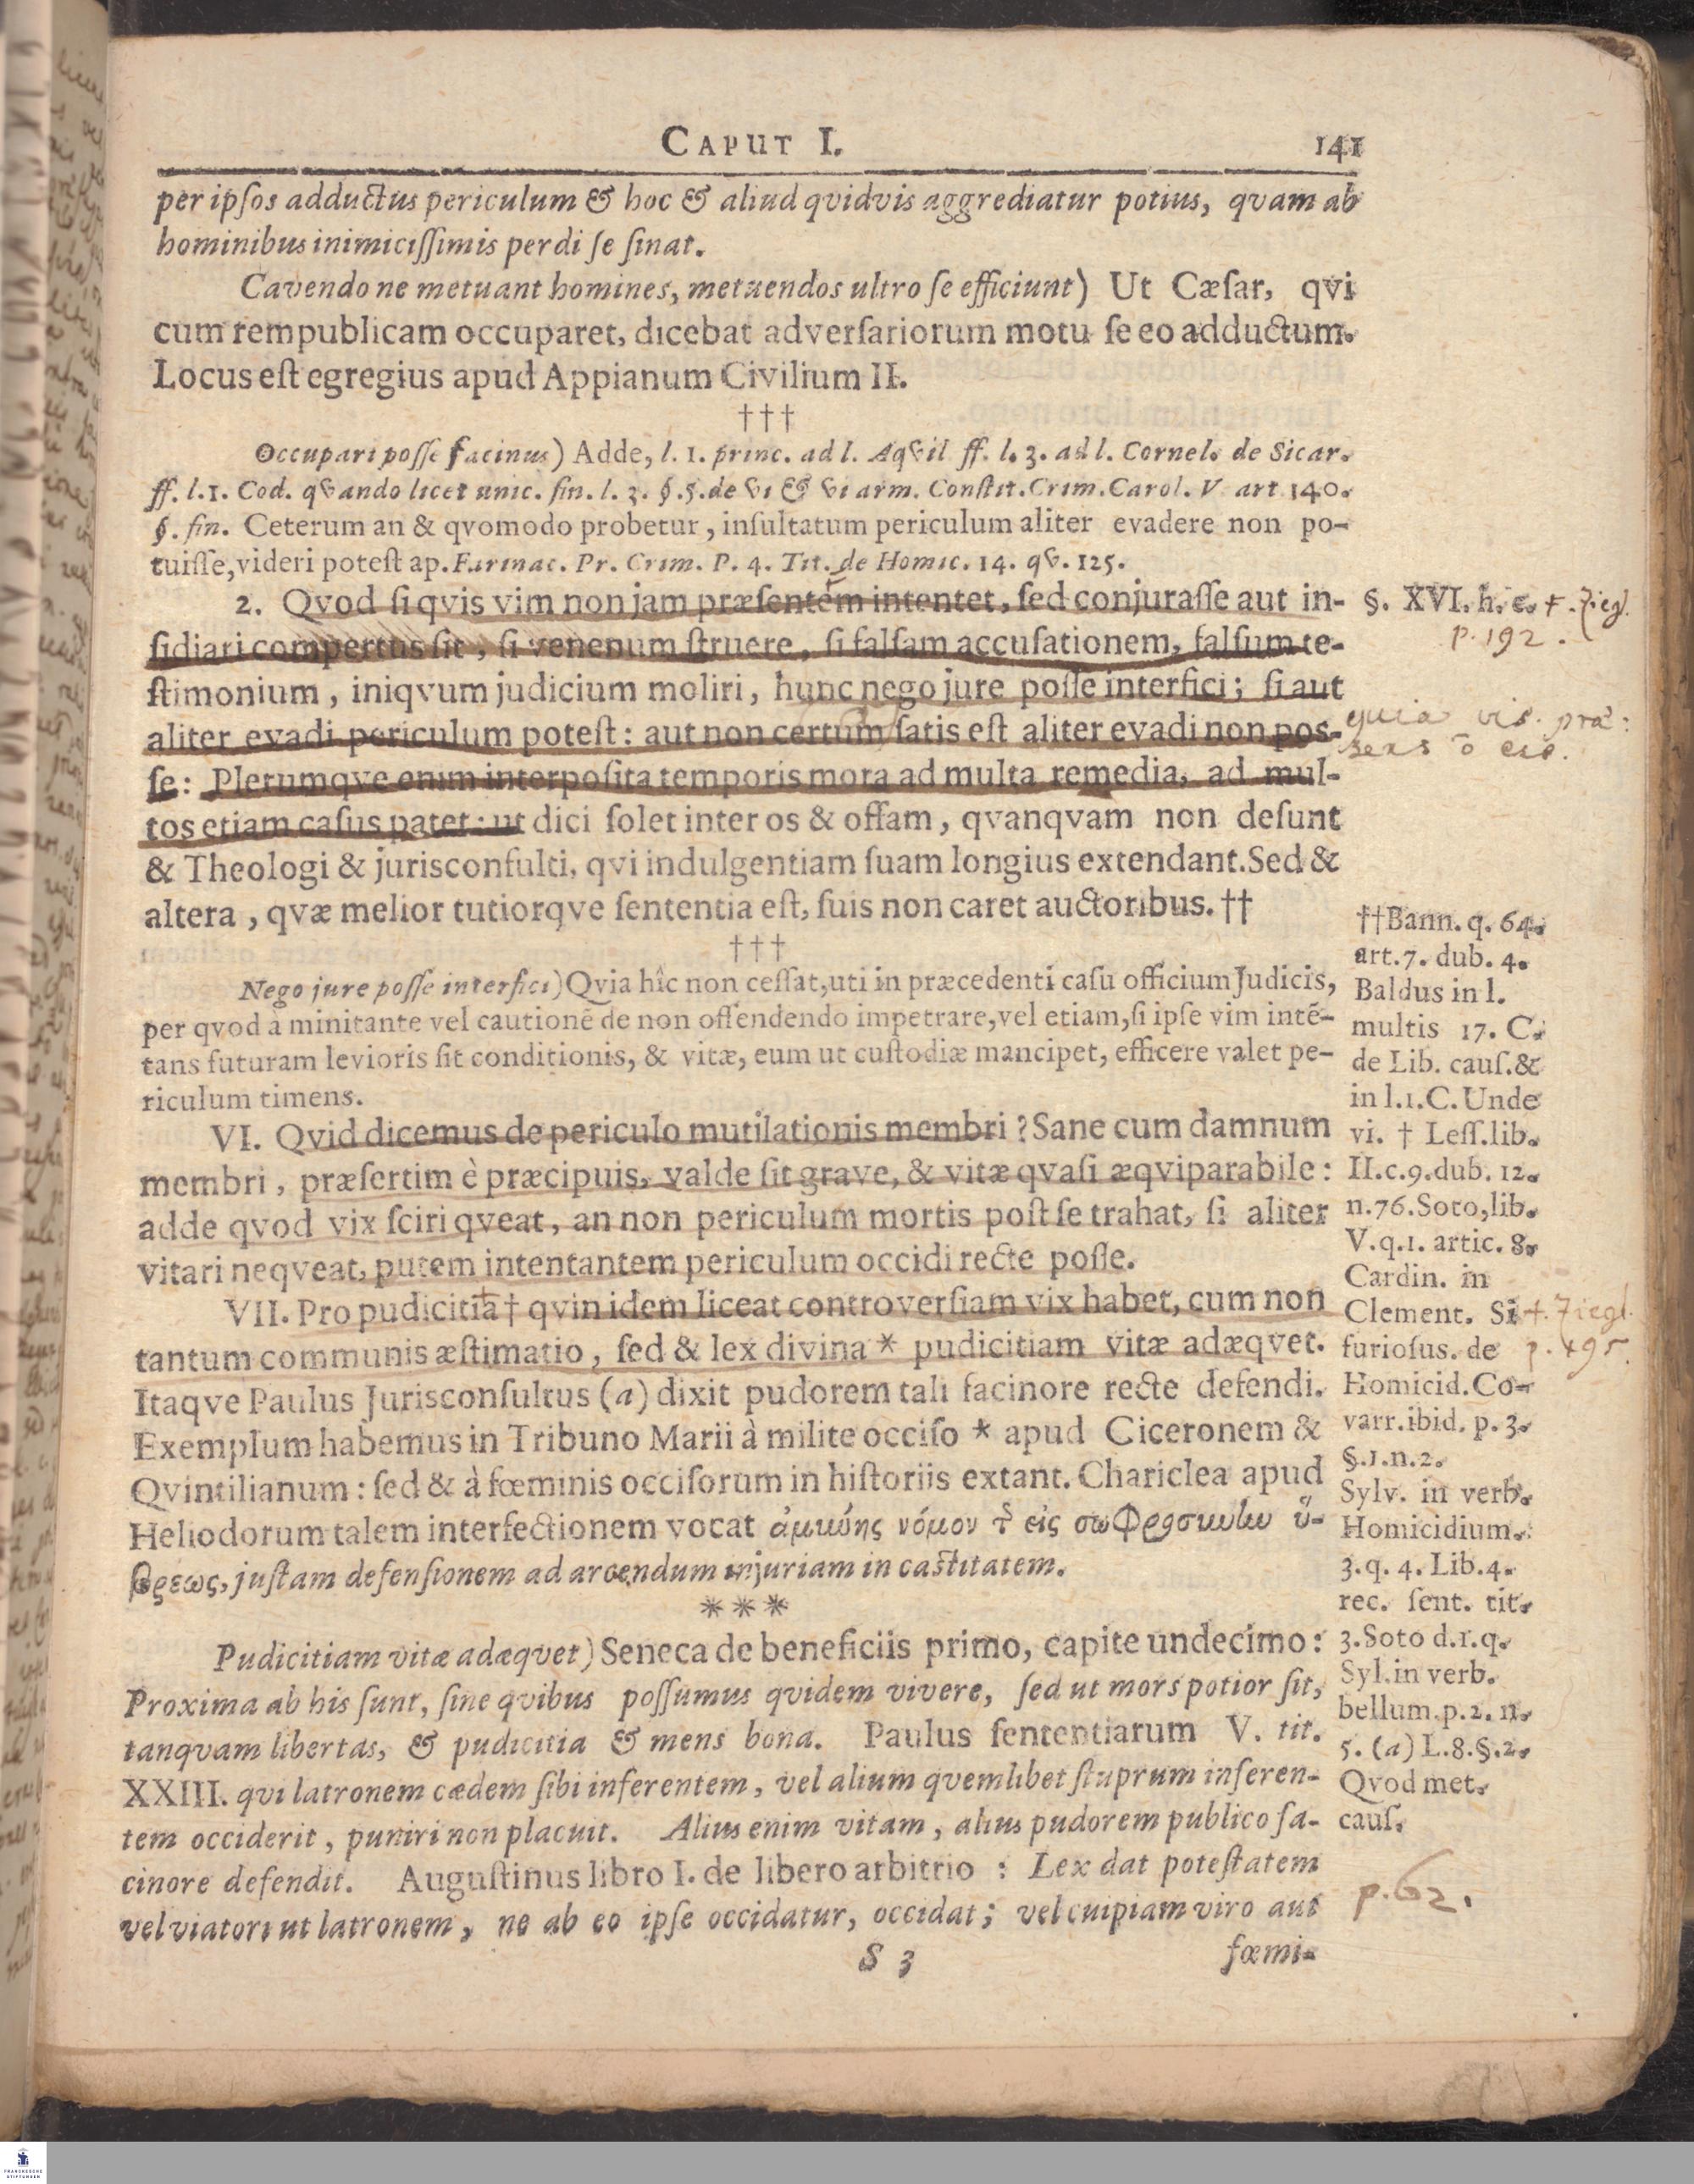 CAPUT I. 141
per ipſos adductus periculum & hoc & aliud qvidvis aggrediatur potius, qvam ab
hominibus inimiciſſimis perdi ſe ſinat.
Cavendo ne metuant homines, metuendos ultro ſe efficiunt) Ut Cæſar, qvi
cum rempublicam occuparet, dicebat adverſariorum motu ſe eo adductum.
Locus eſt egregius apud Appianum Civilium II.
†††
Occupari poſſe facinus) Adde, l. 1. princ. ad l. Aqvil ff. l. 3. ad l. Cornel. de Sicar.
ff. l. 1. Cod. qvando licet unic. fin. l. 3. §. 5. de vi & vi arm. Conſtit. Crim. Carol. V art 140.
§. fin. Ceterum an & qvomodo probetur, inſultatum periculum aliter evadere non po-
tuiſſe, videri poteſt ap. Farinac. Pr. Crim. P. 4. Tit. de Homic. 14. qv. 125.
2. Qvod ſi qvis vim non jam præſentem intentet, ſed conjuraſſe aut in-
ſidiari compertus ſit, ſi venenum ſtruere, ſi falſam accuſationem, falſum te-
ſtimonium, iniqvum judicium moliri, hunc nego jure poſſe interfici; ſi aut
aliter evadi periculum poteſt: aut non certum ſatis eſt aliter evadi non pos-
ſe: Plerumqve enim interpoſita temporis mora ad multa remedia, ad mul-
tos etiam caſus patet: ut dici ſolet inter os & offam, qvanqvam non deſunt
& Theologi & jurisconſulti, qvi indulgentiam ſuam longius extendant. Sed &
altera, qvæ melior tutiorqve ſententia eſt, ſuis non caret auctoribus. ††
†††
Nego jure poſſe interfici) Qvia hîc non ceſſat, uti in præcedenti caſu officium Judicis,
per qvod à minitante vel cautionē de non offendendo impetrare, vel etiam, ſi ipſe vim intē-
tans futuram levioris ſit conditionis, & vitæ, eum ut cuſtodiæ mancipet, efficere valet pe-
riculum timens.
VI. Qvid dicemus de periculo mutilationis membri? Sane cum damnum
membri, præſertim è præcipuis, valde ſit grave, & vitæ qvaſi æqviparabile:
adde qvod vix ſciri qveat, an non periculum mortis poſt ſe trahat, ſi aliter
vitari neqveat, putem intentantem periculum occidi recte poſſe.
VII. Pro pudicitia † qvin idem liceat controverſiam vix habet, cum non
tantum communis æſtimatio, ſed & lex divina * pudicitiam vitæ adæqvet.
Itaqve Paulus Jurisconſultus (a) dixit pudorem tali facinore recte defendi.
Exemplum habemus in Tribuno Marii à milite occiſo * apud Ciceronem &
Qvintilianum: ſed & à fœminis occiſorum in hiſtoriis extant. Chariclea apud
Heliodorum talem interfectionem vocat ἀμιώης νόμον τ εἰς σωφροσυύω ὕ-
βρεως, juſtam defenſionem ad arcendum injuriam in caſtitatem.
***
Pudicitiam vitæ adæqvet) Seneca de beneficiis primo, capite undecimo:
Proxima ab his ſunt, ſine qvibus poſſumus qvidem vivere, ſed ut mors potior ſit,
tanqvam libertas, & pudicitia & mens bona. Paulus ſententiarum V. tit.
XXIII. qvi latronem cædem ſibi inferentem, vel alium qvemlibet ſtuprum inferen-
tem occiderit, puniri non placuit. Alius enim vitam, alius pudorem publico fa-
cinore defendit. Auguſtinus libro I. de libero arbitrio : Lex dat poteſtatem
vel viatori ut latronem, ne ab eo ipſe occidatur, occidat; vel cuipiam viro aut
S 3 fœmi-
§. XVI. h. c. +. Ziegl.
p. 192.
quia vis. præ:
sens ō est.
††Bann. q. 64.
art. 7. dub. 4.
Baldus in l.
multis 17. C.
de Lib. cauſ. &
in l. 1. C. Unde
vi. † Leſſ. lib.
II. c. 9. dub. 12.
n. 76. Soto, lib.
V. q. 1. artic. 8.
Cardin. in
Clement. Si +. Ziegl.
furioſus. de p. 195.
Homicid. Co-
varr. ibid. p. 3.
§. 1. n. 2.
Sylv. in verb.
Homicidium.
3. q. 4. Lib. 4.
rec. ſent. tit.
3. Soto d. 1. q.
Syl. in verb.
bellum. p. 2. n.
5. (a) L. 8. §. 2.
Qvod met.
cauſ.
p. 62.
FRANCKESCHE
STIFTUNGEN